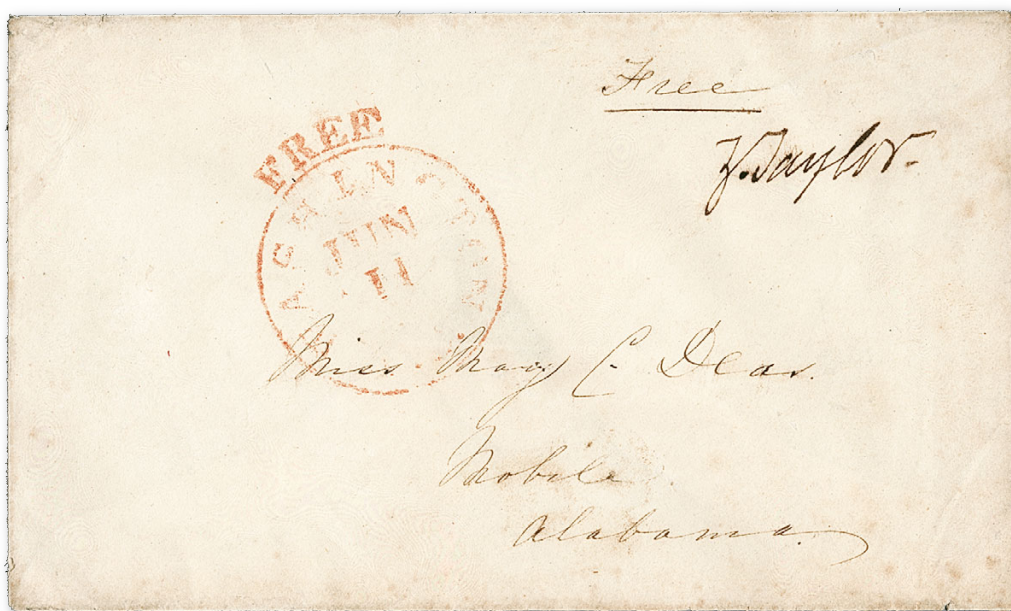 Free
Z. Taylor.
FREE
WASHINGTON
JUN
11
Miss Mary C. Deas.
Mobile
Alabama.